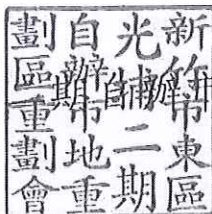 新竹市東區
光埔二期
自辦市地重
劃區重劃會